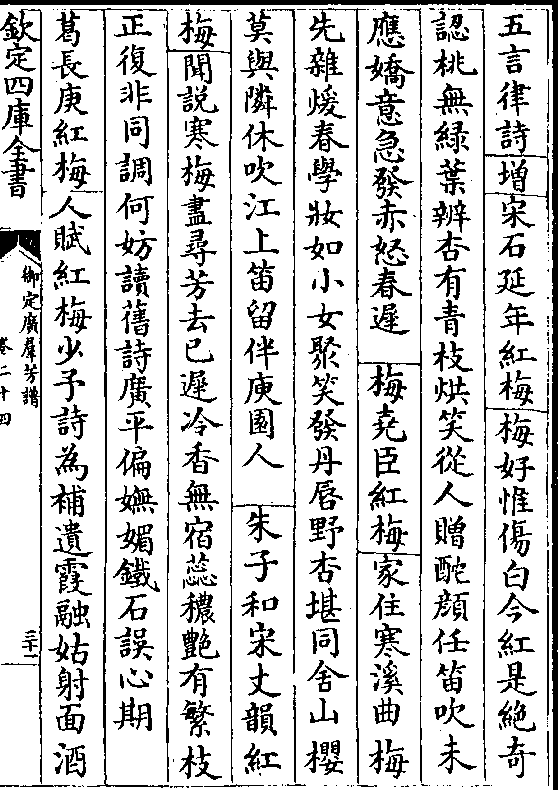 五言律詩增宋石延年紅梅梅好惟傷白今紅是絶奇
認桃無緑葉辨杏有青枝烘笑從人贈酡顔任笛吹未
應嬌意急發赤怒春遲　梅堯臣紅梅家住寒溪曲梅
先雜煖春學妝如小女聚笑發丹唇野杏堪同舍山櫻
莫與隣休吹江上笛留伴庾園人　朱子和宋丈韻紅
梅聞説寒梅盡尋芳去已遲冷香無宿蕊穠艷有繁枝
正復非同調何妨讀舊詩廣平偏嫵媚鐵石誤心期
葛長庚紅梅人賦紅梅少予詩為補遺霞融姑射面酒
欽定四庫全書
御定廣羣芳譜
卷二十四
三十一